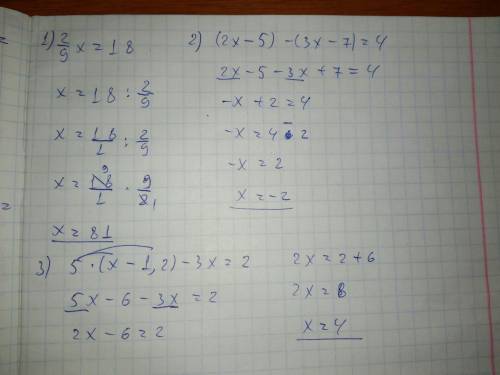 1) 2/9 x = 18
x = 18 : 2/9
x = 18/1 : 2/9
x = 18/1 · 9/2
9 1
x = 81
2) (2x - 5) - (3x - 7) = 4
2x - 5 - 3x + 7 = 4
-x + 2 = 4
-x = 4 - 2
-x = 2
x = -2
3) 5 · (x - 1,2) - 3x = 2
5x - 6 - 3x = 2
2x - 6 = 2
2x = 2 + 6
2x = 8
x = 4